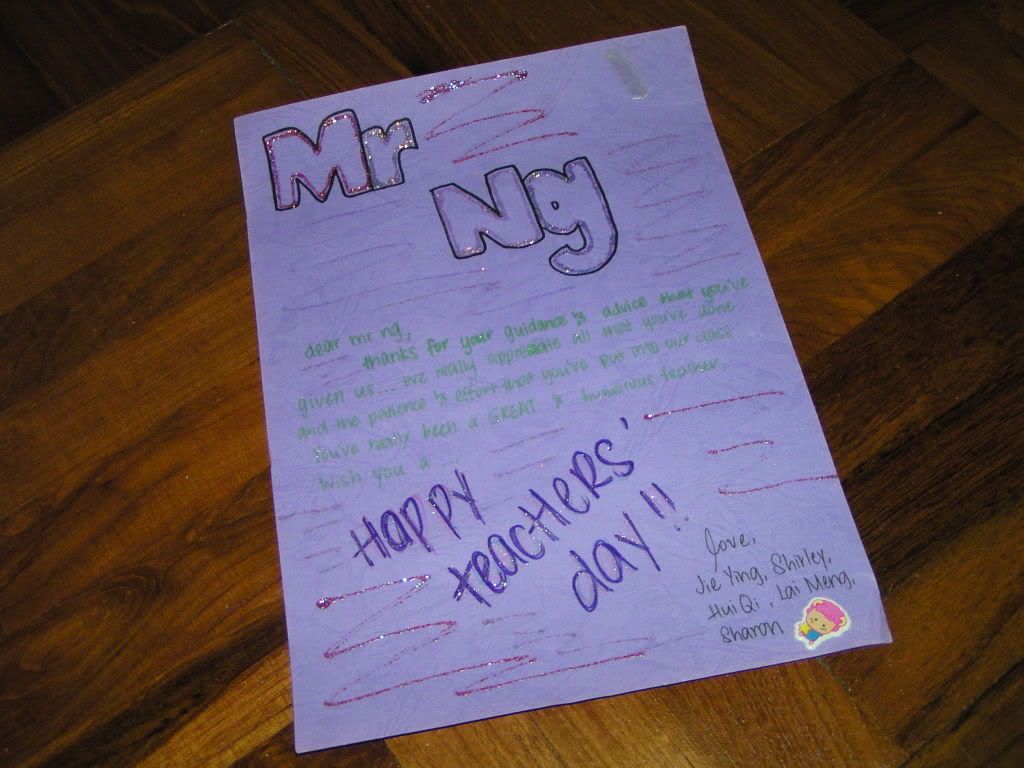 Mr
Ng
dear mr ng,
thanks for your guidance & advice that you've
given us... we really appreciate all that you've done
and the patience & effort that you've put into our class
You've really been a GREAT & humurous teacher,
wish you a ...
HAPPY
teacHERS'
day!!
love,
Jie Ying, Shirley,
Hui Qi, Lai Meng,
Sharon